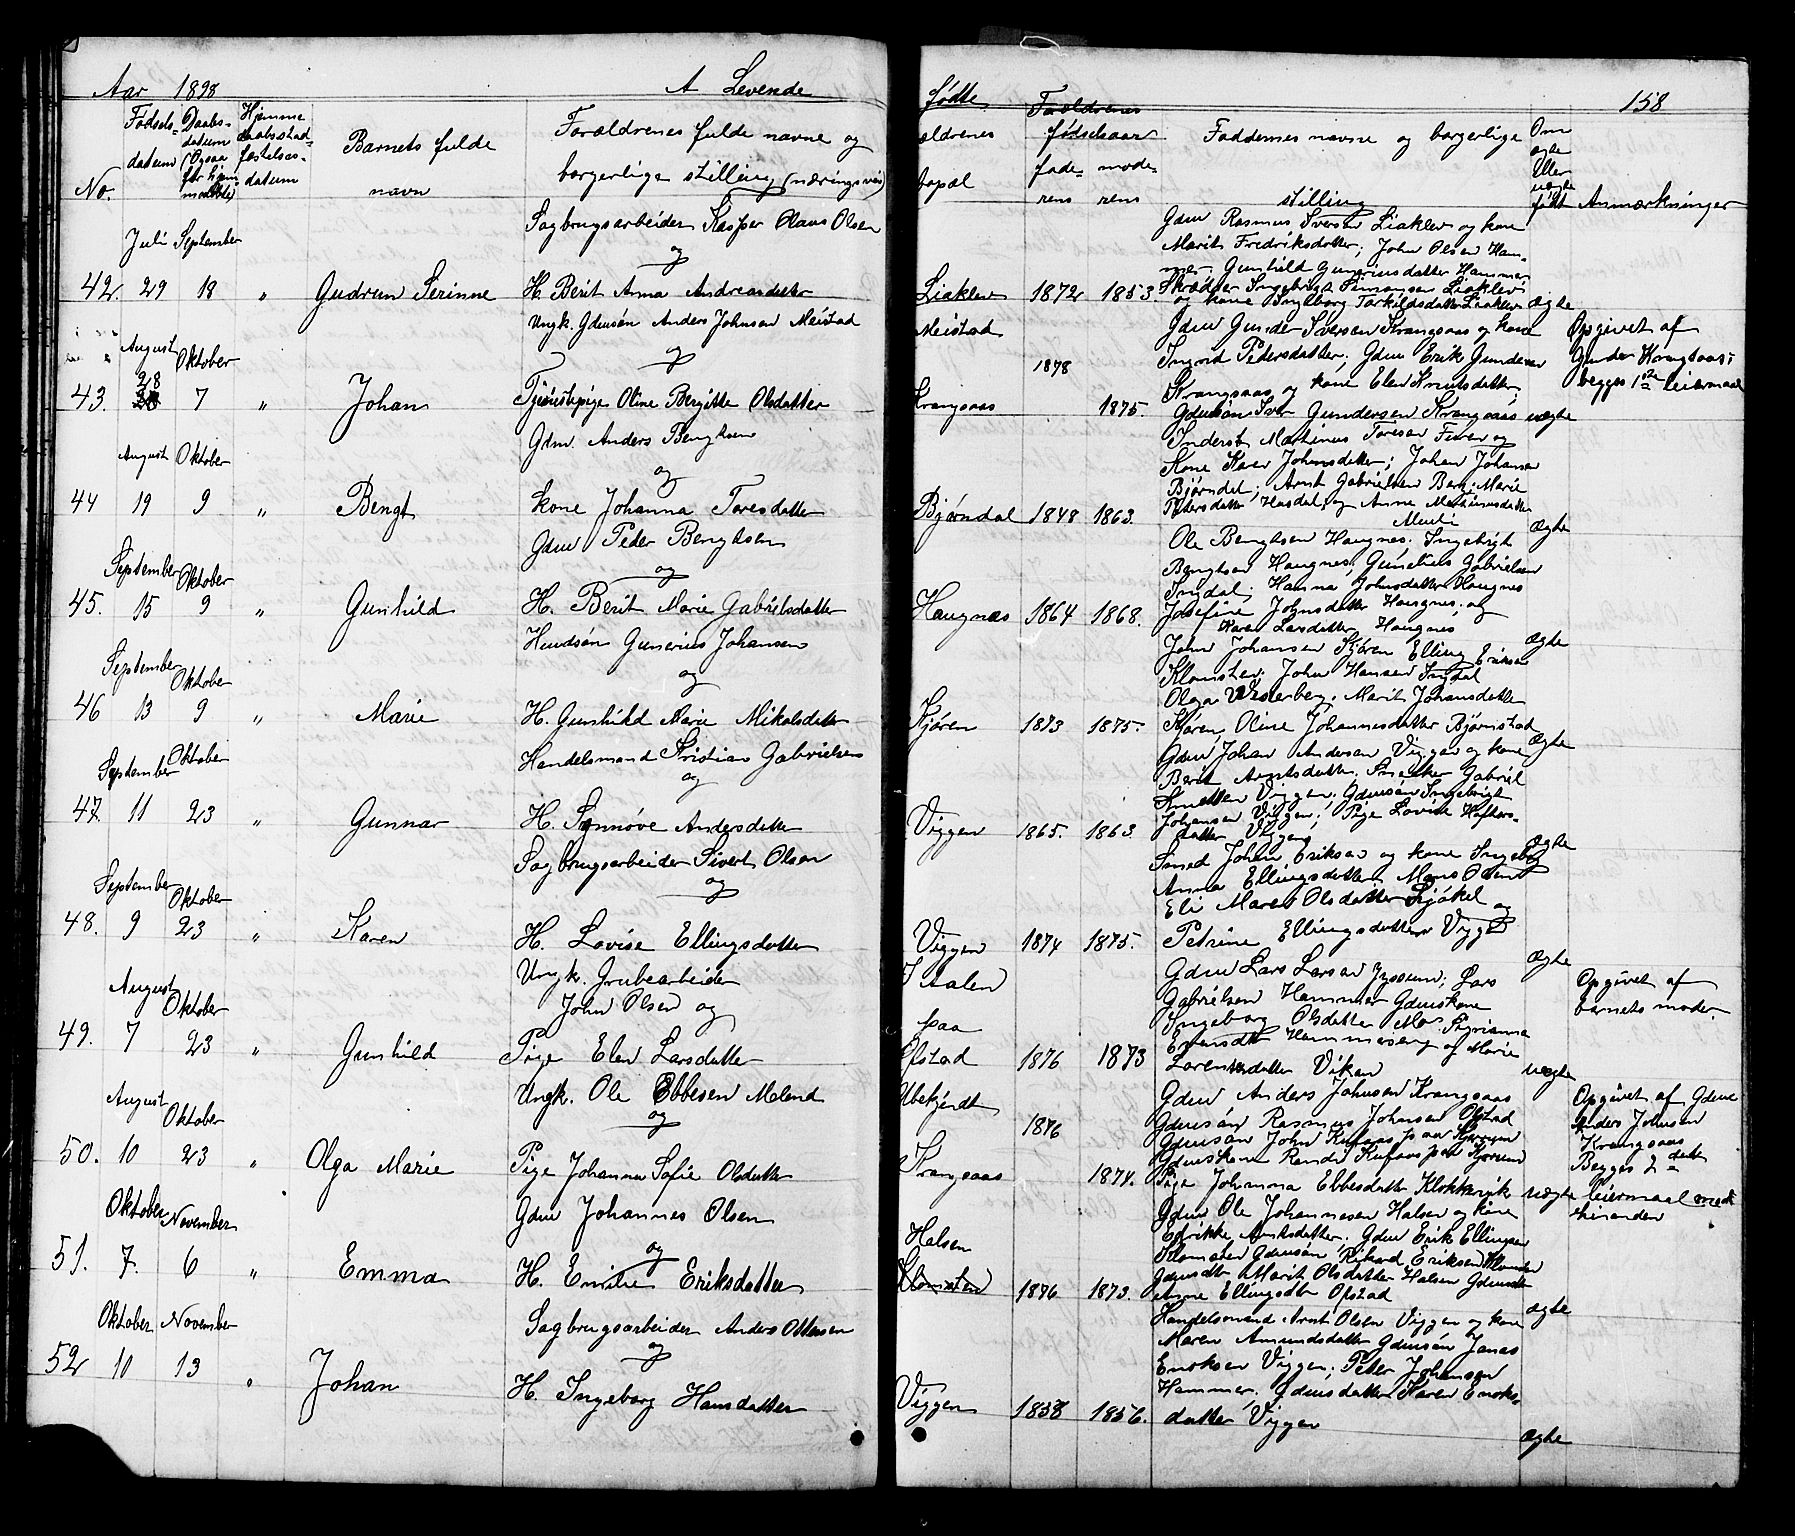 Aar 1898 A Levende
Fødsels- datum
Daabs- datum (Ogsaa for hjem- medøbte)
Hjemme daabsstad- fæstelses- datum
No.
Barnets fulde navn
Forældrenes fulde navne og
borgerlige stilling (næringsvei)
Juli September
Sagbrugsarbeider Kasper Olaus Olsen
og
42. 29 18 " Gudrun Serinne H. Berit Anna Andreasdatter
August Oktober
Ungk. Gdmsøn Anders Johnsen Meistad
og
43. 28 7 " Johan Tjenestepige Oline Bergitte Olsdatter
August Oktober
Gdm. Anders Bengtsen
og
44 19 9 " Bengt kone Johanna Toresdatter
September Oktober
Gdm Peder Bengtsen
og
45. 15 9 " Gunhild H. Berit Marie Gabrielsdatter
September Oktober
Husmdsøn Gunerius Johansen
og
46 13 9 " Marie H. Gunhild Marie Mikalsdatter
September Oktober
Handelsmand Kristian Gabrielsen
og
47. 11 23 " Gunnar H. Synnøve Andersdatter
September Oktober
Sagbrugsarbeider Sivert Olsen
og
48. 9 23 " Karen H. Lovise Ellingsdatter
August Oktober
Ungk. Grubearbeider
John Olsen og
49. 7 23 " Gunhild Pige Elen Larsdatter
August Oktober
Ungk. Ole Ebbesen Meland
og
50. 10 23 " Olga Marie Pige Johanna Sofie Olsdatter
Oktober November
Gdm Johannes Olsen
og
51. 7. 6 " Emma H. Emilie Eriksdatter
Oktober November
Sagbrugsarbeider Anders Ottesen
og
52 10 13 " Johan H. Ingeborg Hansdatter
fødte 158
ældrenes bopæl
Forældrenes fødselsaar
fade- rens mode- rens
Faddernes navne og borgerlige
stilling
Om ægte eller uægte født
Anmærkninger
Gdm Rasmus Iversen Liaklev og kone
Marit Fredriksdatter; John Olsen Ham-
mer. Gunhild Guneriusdatter Hammer
Skrædder Ingebrigt Liaklev
Liaklev 1872 1853 og kone Ingeborg Torkildsdatter Liaklev ægte
Meistad
Gdm Gunder Iversen Krangsaas og kone
Opgivet af
1878 Ingrid Pedersdatter; Gdm Erik Gundersen
Gunder Krangsaas;
Krangsaas og kone Elen Knutsdatter;
begges 1ste leiermaal
Krangsaas 1875. Gdmsøn Iver Gundersen Krangsaas uægte
Inderst Martinus Toresen Furen og
Kone Karen Johnsdatter; Johan Johansen
Bjørndal; Arnt Gabrielsen Berg; Marie
Bjørndal 1848 1863. Pedersdatter Hasdal, og Anne Martinusdatter
ægte
Ole Bengtsen Haugnes. Ingebrigt
Bengtsen Haugnes; Gabrielsen
Hanna Johnsdatter Haugnes
Haugnæs 1864 1868. Josefine Johnsdatter Haugnes; og
Karen Larsdatter Haugnes ægte
John Johansen Kjøren Elling Eriksen
John Hansen
Olga Westerberg. Marit Johansdatter
Kjøren 1873 1875. Kjøren, Oline Johannesdatter Bjørnstad
ægte
Gdm Johan Andersen Viggen og kone
Berit Arntsdatter. Snekker Gabriel
Viggen. Gdmsøn Ingebrigt
Viggen 1865. 1863. Johansen Viggen; Pige Lovise
datter Viggen ægte
Smed Johan Eriksen og kone Ingeborg
Anna Ellingsdatter Mons Olsen
Eli Maren Olsdatter og
Viggen 1874 1875. Petrine Ellingsdatter Viggen
ægte
Gdm Lars Larsen Jyssum; Lars
Opgivet af
Gabrielsen Hammer Gdmskone
barnets moder.
paa
Ingeborg Olsdatter Mo
Hammerseng og Marie
Opstad 1876 1873 Lorentsdatter Vikan uægte
Ubekjendt
Gdm Anders Johnsen Krangsaas
Opgivet af Gdm
1876 Gdmsøn Rasmus Johnsen Opstad
Anders Johnsen
Gdmsøn John
Krangsaas
Gdmskone Randi
Begges 2det
Krangsaas 1874. Pige Johanna Ebbesdatter uægte leiermaal med
hinanden
Gdm Ole Johannesen Halsen og kone
Halsen
Arntsdatter. Gdm Erik Ellingsen
Gdmsøn Rikard Eriksen
Gdmdtr Marit Olsdatter Halsen
1876 1873. Anne Ellingsdtr Opstad
ægte
Handelsmand Arnt Olsen Viggen og kone
Maren Amundsdatter Gdmsøn Jonas
Enoksen Viggen; Peter Johansen
Hammer. Gdmsdatter Karen Enoks-
Viggen 1858 1856. datter Viggen
ægte